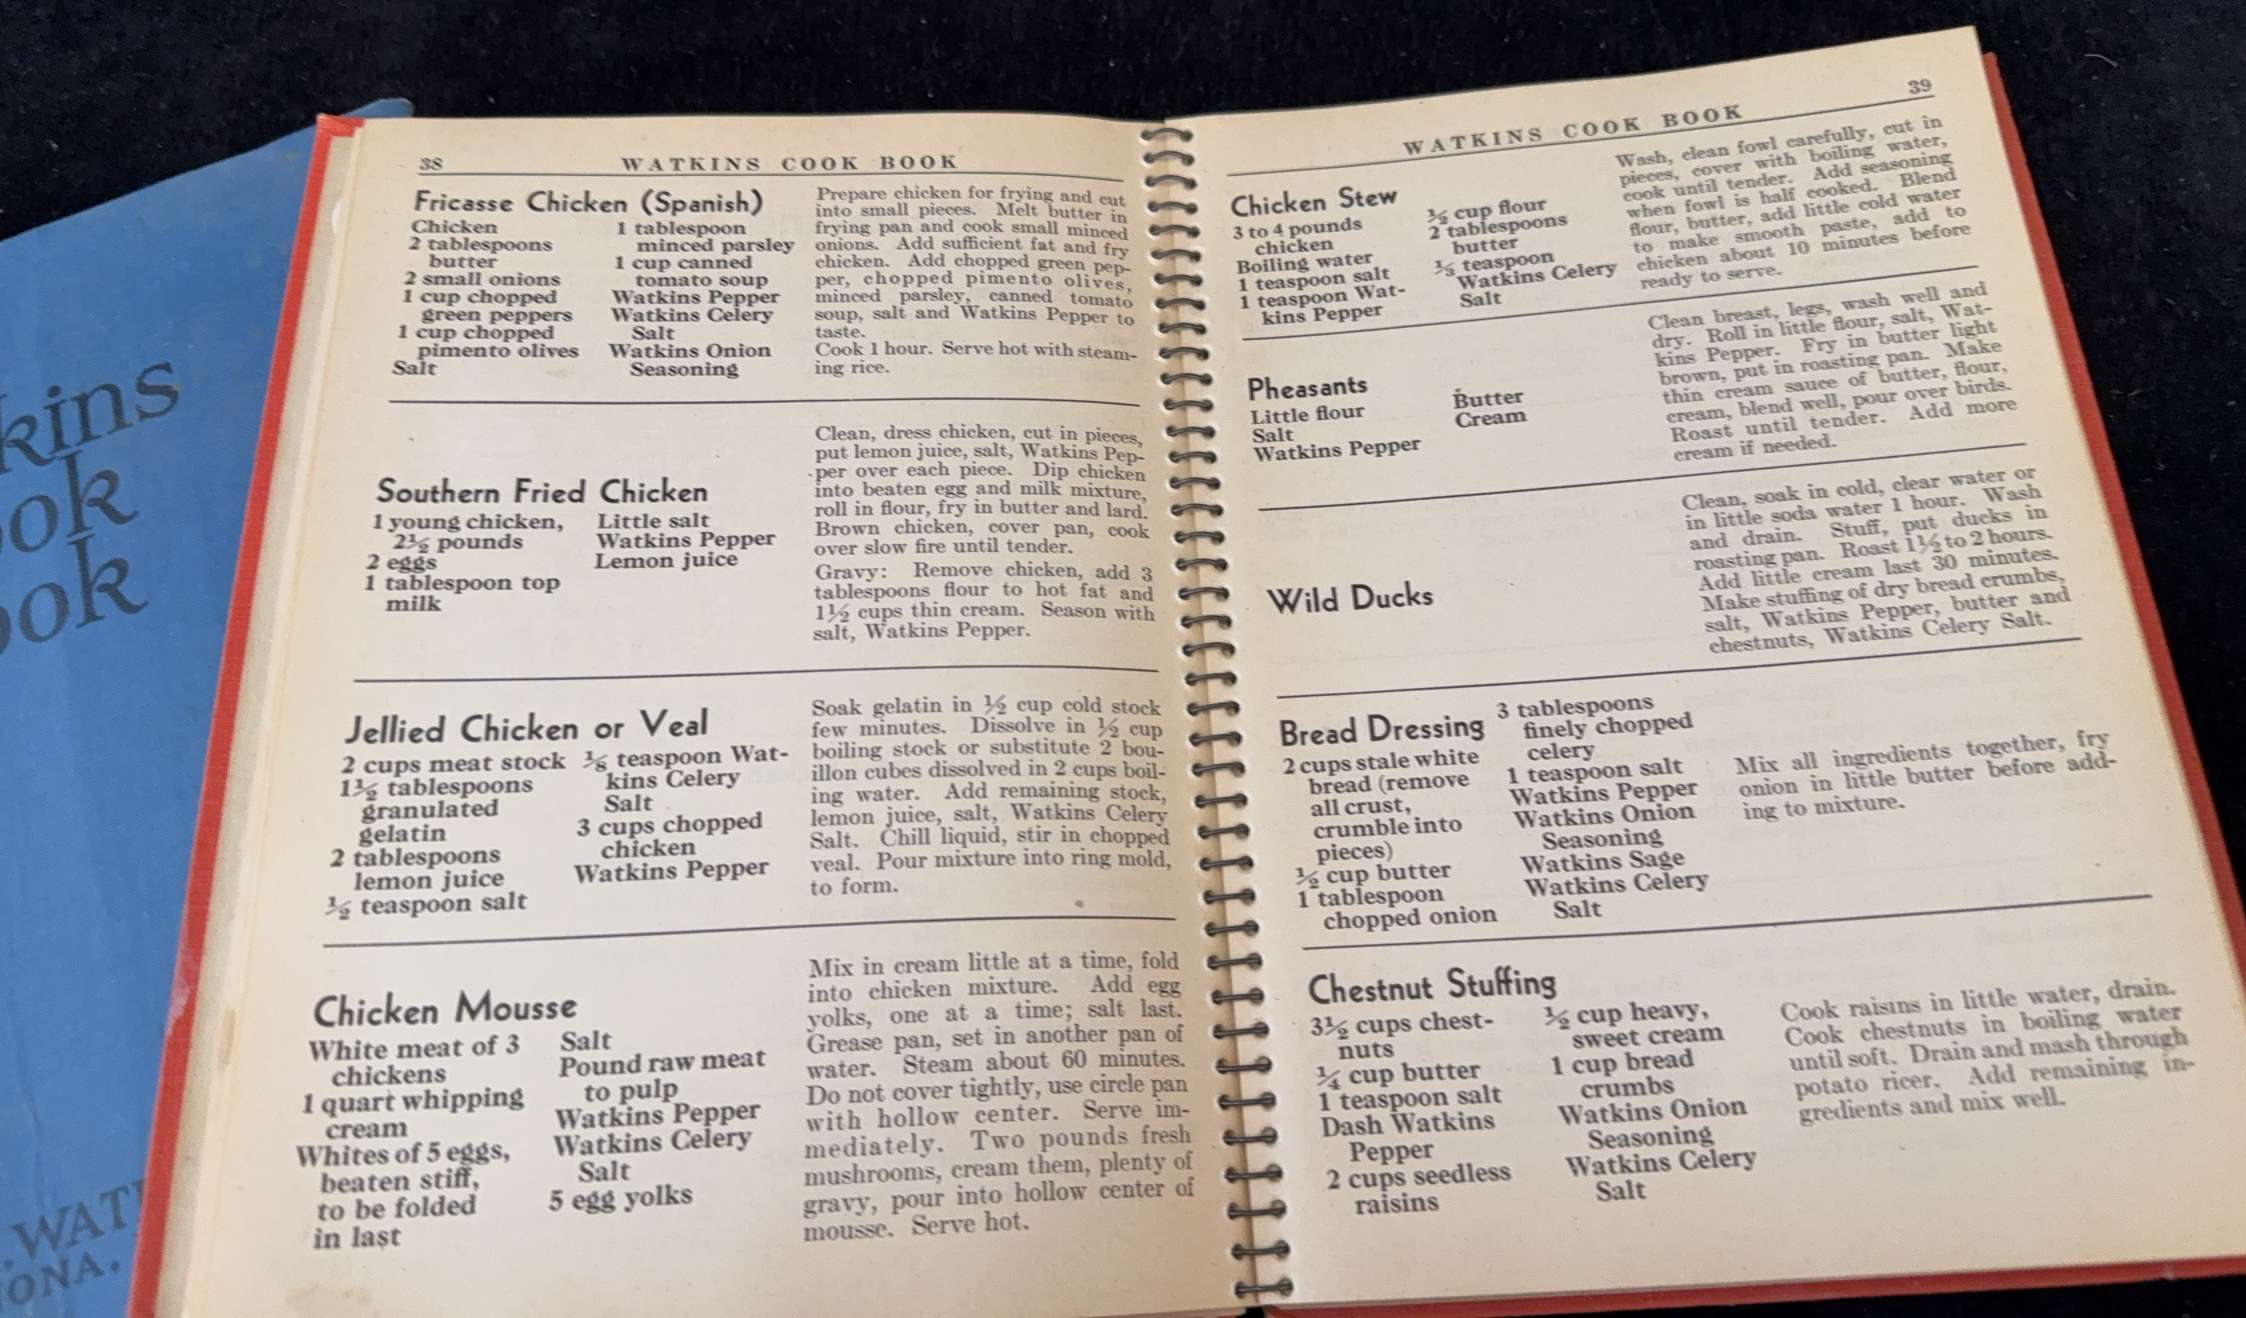 kins
ook
ook
WAT
ONA.
38
WATKINS COOK BOOK
Fricasse Chicken (Spanish)
Chicken
2 tablespoons
butter
2 small onions
1 cup chopped
green peppers
1 cup chopped
pimento olives
Salt
1 tablespoon
minced parsley
1 cup canned
tomato soup
Watkins Pepper
Watkins Celery
Salt
Watkins Onion
Seasoning
Prepare chicken for frying and cut
into small pieces. Melt butter in
frying pan and cook small minced
onions. Add sufficient fat and fry
chicken. Add chopped green pep-
per, chopped pimento olives,
minced parsley, canned tomato
soup, salt and Watkins Pepper to
taste.
Cook 1 hour. Serve hot with steam-
ing rice.
Southern Fried Chicken
1 young chicken,
2½ pounds
2 eggs
1 tablespoon top
milk
Little salt
Watkins Pepper
Lemon juice
Clean, dress chicken, cut in pieces,
put lemon juice, salt, Watkins Pep-
per over each piece. Dip chicken
into beaten egg and milk mixture,
roll in flour, fry in butter and lard.
Brown chicken, cover pan, cook
over slow fire until tender.
Gravy: Remove chicken, add 3
tablespoons flour to hot fat and
1½ cups thin cream. Season with
salt, Watkins Pepper.
Jellied Chicken or Veal
2 cups meat stock
1½ tablespoons
granulated
gelatin
2 tablespoons
lemon juice
½ teaspoon salt
⅛ teaspoon Wat-
kins Celery
Salt
3 cups chopped
chicken
Watkins Pepper
Soak gelatin in ½ cup cold stock
few minutes. Dissolve in ½ cup
boiling stock or substitute 2 bou-
illon cubes dissolved in 2 cups boil-
ing water. Add remaining stock,
lemon juice, salt, Watkins Celery
Salt. Chill liquid, stir in chopped
veal. Pour mixture into ring mold,
to form.
Chicken Mousse
White meat of 3
chickens
1 quart whipping
cream
Whites of 5 eggs,
beaten stiff,
to be folded
in last
Salt
Pound raw meat
to pulp
Watkins Pepper
Watkins Celery
Salt
5 egg yolks
Mix in cream little at a time, fold
into chicken mixture. Add egg
yolks, one at a time; salt last.
Grease pan, set in another pan of
water. Steam about 60 minutes.
Do not cover tightly, use circle pan
with hollow center. Serve im-
mediately. Two pounds fresh
mushrooms, cream them, plenty of
gravy, pour into hollow center of
mousse. Serve hot.
39
WATKINS COOK BOOK
Chicken Stew
3 to 4 pounds
chicken
Boiling water
1 teaspoon salt
1 teaspoon Wat-
kins Pepper
½ cup flour
2 tablespoons
butter
⅓ teaspoon
Watkins Celery
Salt
Wash, clean fowl carefully, cut in
pieces, cover with boiling water,
cook until tender. Add seasoning
when fowl is half cooked. Blend
flour, butter, add little cold water
to make smooth paste, add to
chicken about 10 minutes before
ready to serve.
Pheasants
Little flour
Salt
Watkins Pepper
Butter
Cream
Clean breast, legs, wash well and
dry. Roll in little flour, salt, Wat-
kins Pepper. Fry in butter light
brown, put in roasting pan. Make
thin cream sauce of butter, flour,
cream, blend well, pour over birds.
Roast until tender. Add more
cream if needed.
Wild Ducks
Clean, soak in cold, clear water or
in little soda water 1 hour. Wash
and drain. Stuff, put ducks in
roasting pan. Roast 1½ to 2 hours.
Add little cream last 30 minutes.
Make stuffing of dry bread crumbs,
salt, Watkins Pepper, butter and
chestnuts, Watkins Celery Salt.
Bread Dressing
2 cups stale white
bread (remove
all crust,
crumble into
pieces)
½ cup butter
1 tablespoon
chopped onion
3 tablespoons
finely chopped
celery
1 teaspoon salt
Watkins Pepper
Watkins Onion
Seasoning
Watkins Sage
Watkins Celery
Salt
Mix all ingredients together, fry
onion in little butter before add-
ing to mixture.
Chestnut Stuffing
3½ cups chest-
nuts
¼ cup butter
1 teaspoon salt
Dash Watkins
Pepper
2 cups seedless
raisins
½ cup heavy,
sweet cream
1 cup bread
crumbs
Watkins Onion
Seasoning
Watkins Celery
Salt
Cook raisins in little water, drain.
Cook chestnuts in boiling water
until soft. Drain and mash through
potato ricer. Add remaining in-
gredients and mix well.